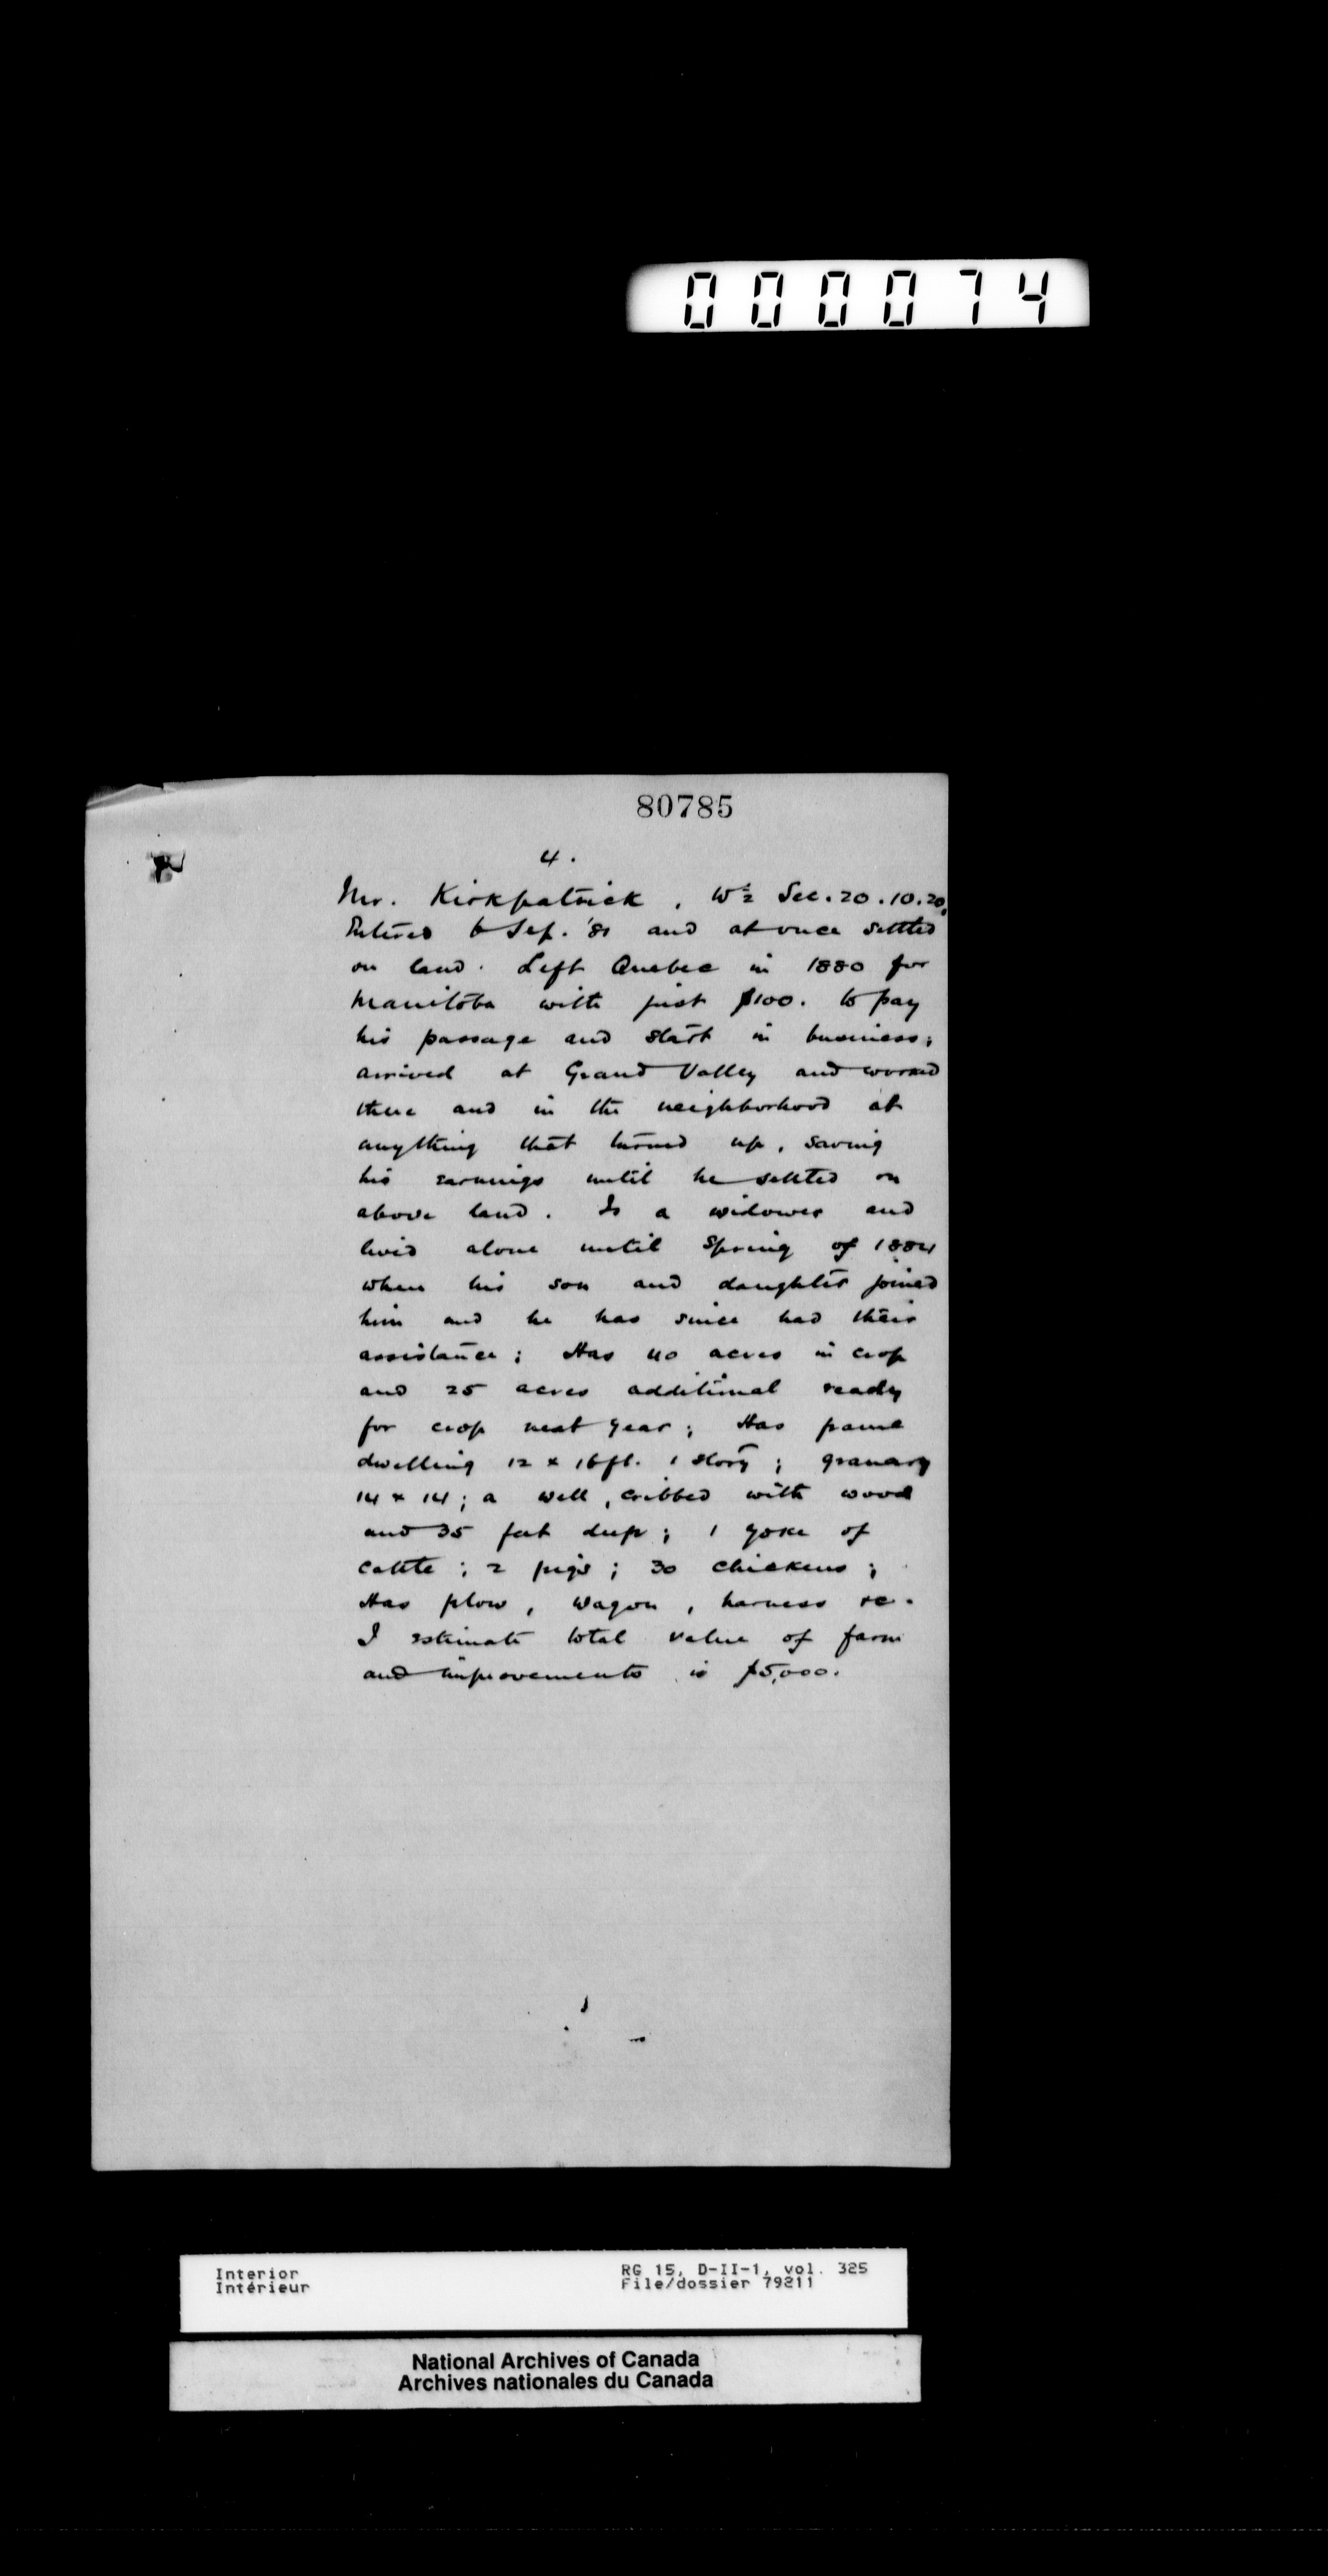 000074
80785
4.
Mr. Kirkpatrick, W½ Sec. 20.10.20,
Entered 6 Sep. '81 and at once settled
on land. Left Quebec in 1880 for
Manitoba with just $100. to pay
his passage and start in business;
arrived at Grand Valley and worked
there and in the neighborhood at
anything that turned up, saving
his earnings until he settled on
above land. Is a widower and
lived alone until Spring of 1884
when his son and daughter joined
him and he has since had their
assistance; Has 40 acres in crop
and 25 acres additional ready
for crop next year; Has frame
dwelling 12 x 16 ft. 1 story; granary
14 x 14; a well, cribbed with wood
and 35 feet deep; 1 yoke of
cattle; 2 pigs; 30 chickens;
Has plow, wagon, harness &c.
I estimate total value of farm
and improvements is $5,000.
Interior RG 15, D-II-1, vol. 325
Intérieur File/dossier 79211
National Archives of Canada
Archives nationales du Canada